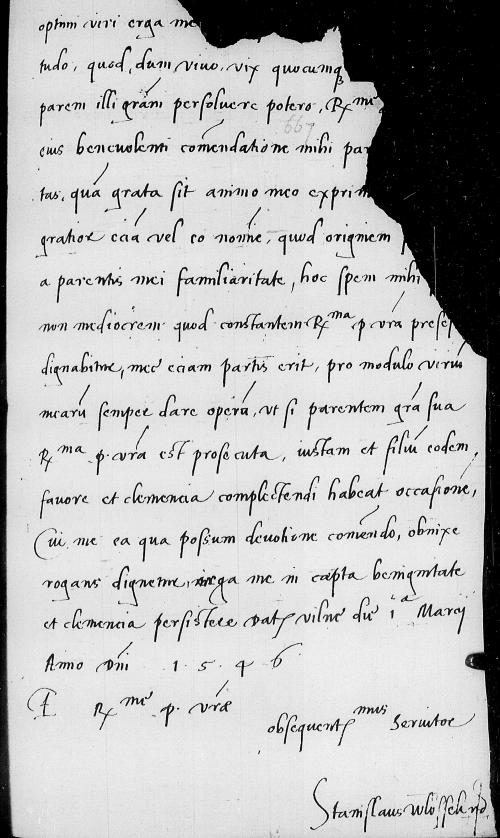 optimi viri erga me
tudo, quod, dum vivo, vix quocumq3
parem illi grãm persolvere potero, Rx^me
667
eius benevolenti comẽndatione mihi par
tas, quã grata sit animo meo exprim
gratior eciã vel eo noĩe, quod originem
a parentis mei familiaritate, hoc spem mihi
non mediocrem quod constantem Rx^ma p vrã
dignabitur, mee eciam partis erit, pro modulo viriũ
mearũ semper dare operã, ut si parentem grã sua
Rx^ma p. vrã est prosecuta, iustam et filiũ eodem
favore et clemencia complectendi habeat occasionẽ,
Cui me ea qua possum devotione comẽndo, obnixe
rogans dignetur, erga me in capta benignitate
et clemencia persistere Datȩ vilnẽ die i^a Marcij
Anno Dñi 1 5 4 6
E Rx^me p. vrãe
obsequentȩ^mus Servitor
Stanislaus